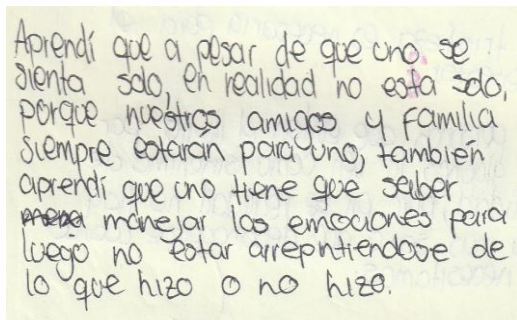 Aprendí que a pesar de que uno se
sienta solo, en realidad no está solo,
porque nuestros amigos y familia
siempre estarán para uno, también
aprendí que uno tiene que saber
manejar las emociones para
luego no estar arrepintiendose de
lo que hizo o no hizo.